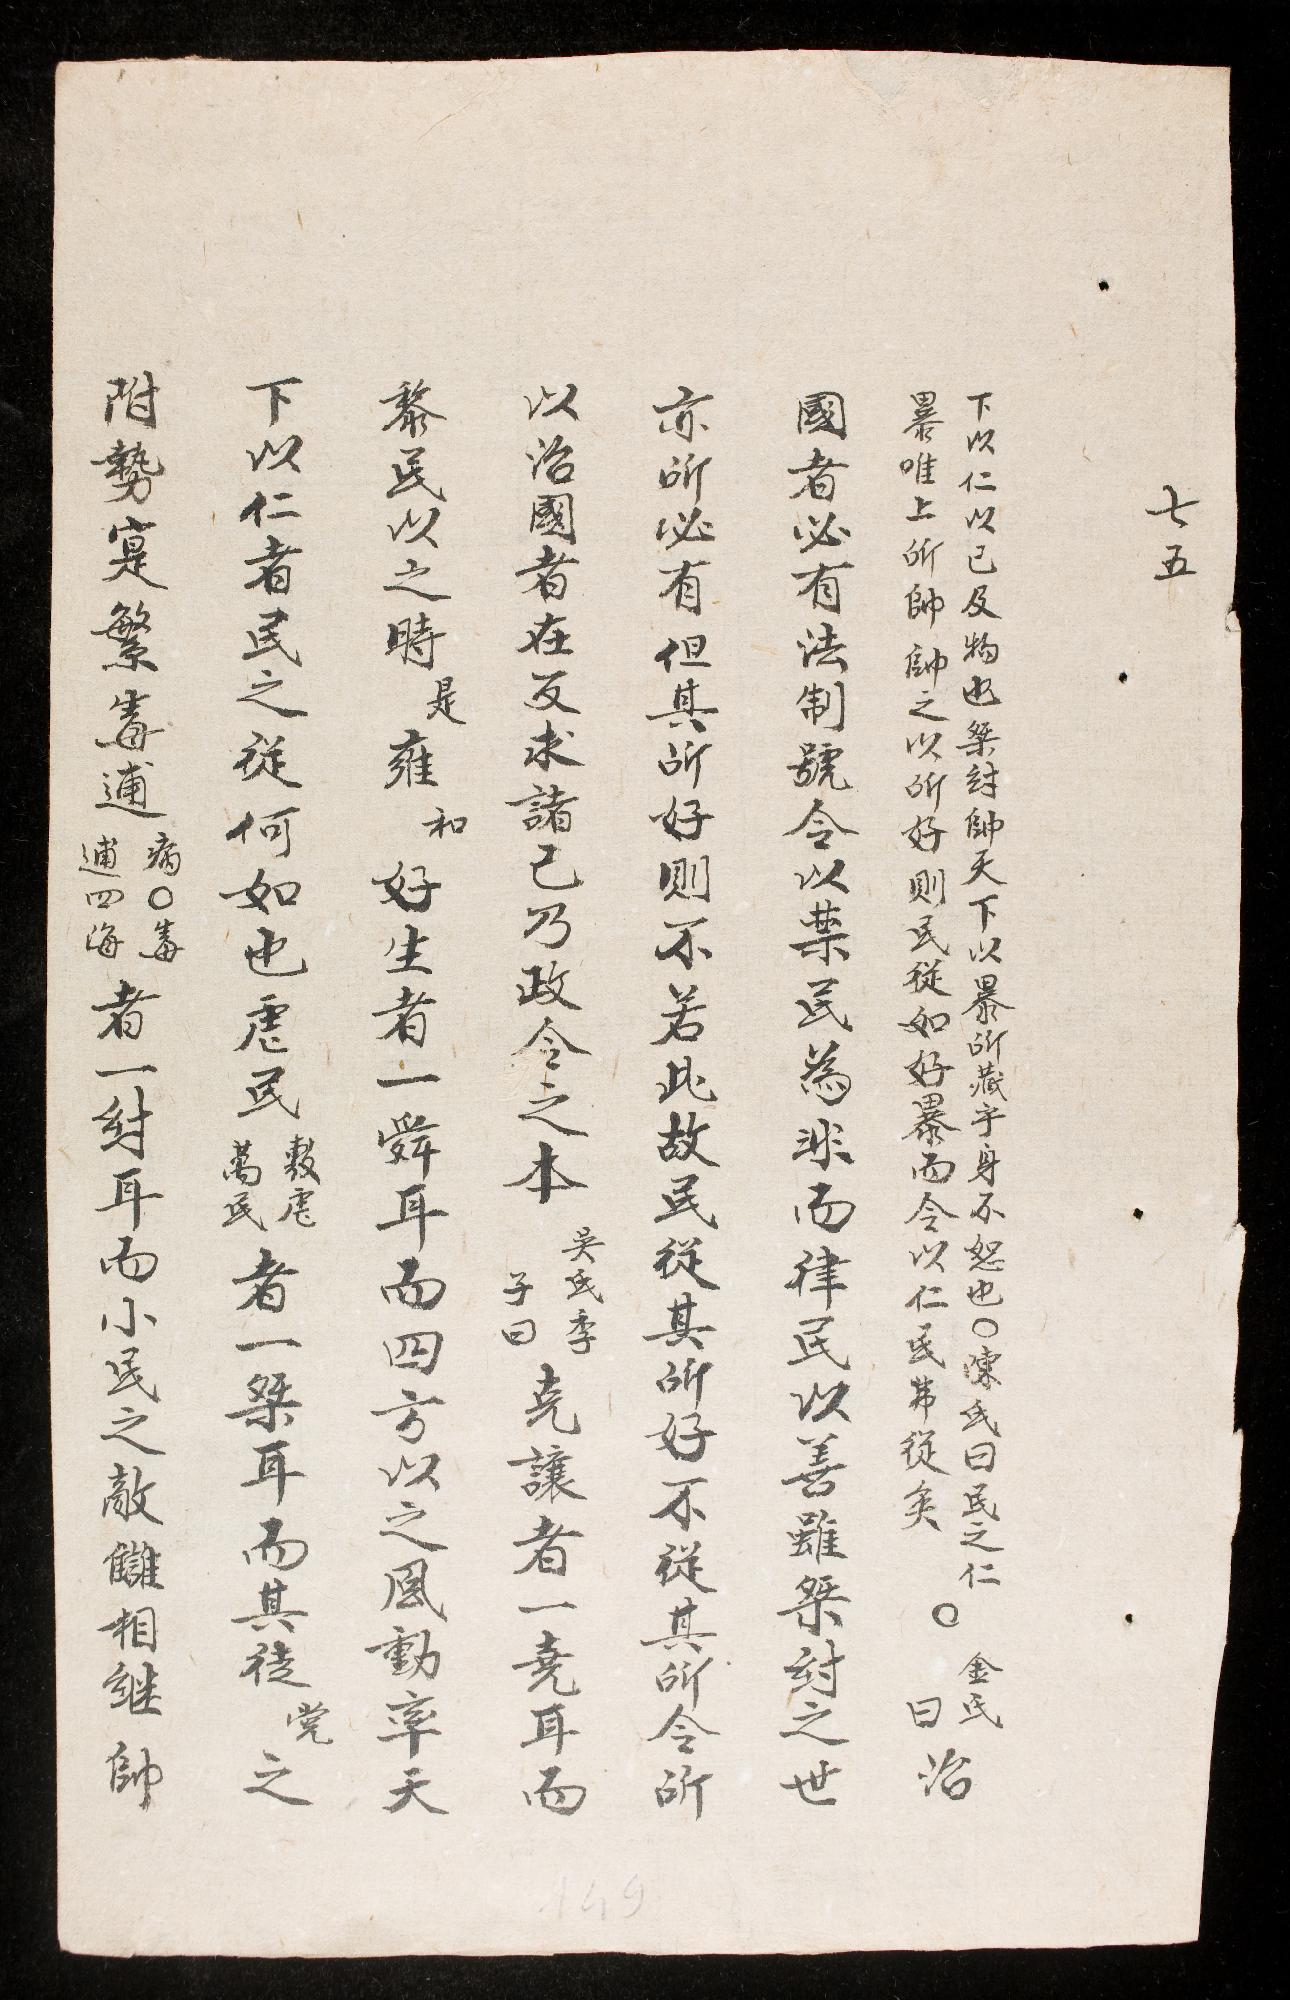 七五
下以仁以己及物也桀紂帥天下以暴所藏乎身不恕也〇陳氏曰民之仁
暴唯上所帥帥之以所好則民從如好暴而令以仁民弗從矣
〇金氏曰治
國者必有法制號令以禁民為非而律民以善雖桀紂之世
亦所必有但其所好則不若此故民從其所好不從其所令所
以治國者在反求諸己乃政令之本吳氏季子曰堯讓者一堯耳而
黎民以之時是雍和好生者一舜耳而四方以之風動率天
下以仁者民之從何如也虐民敷虐萬民者一桀耳而其徒党之
附勢寔繁毒逋痛〇毒逋四海者一紂耳而小民之敵讎相継帥
149